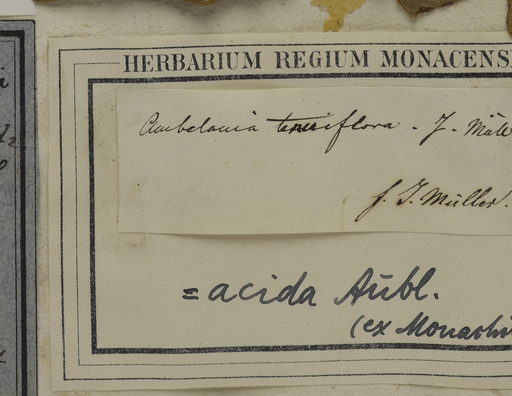 HERBARIUM REGIUM MONACENS
Ambelania tenuiflora. J. Müll
f. J. Müller.
= acida Aubl.
(ex Monachi